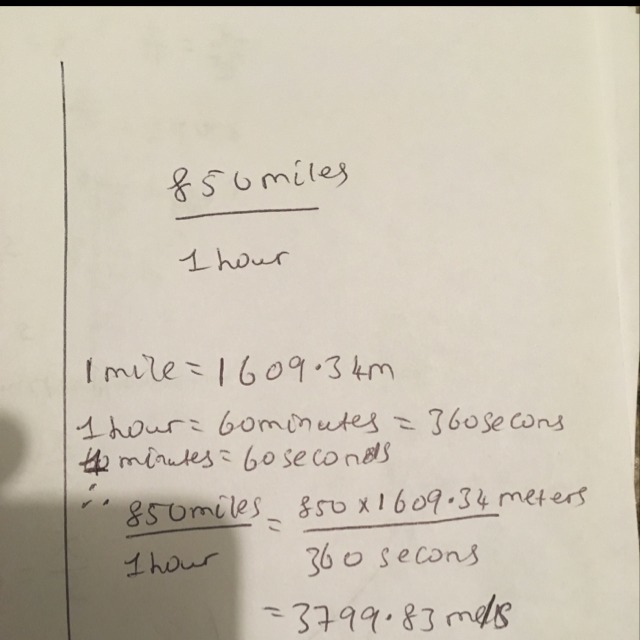 850miles
1 hour
1 mile = 1609.34m
1 hour = 60minutes = 360secons
minutes = 60seconds
∴ 850miles = 850 x 1609.34 meters
1 hour 360 secons
= 3799.83